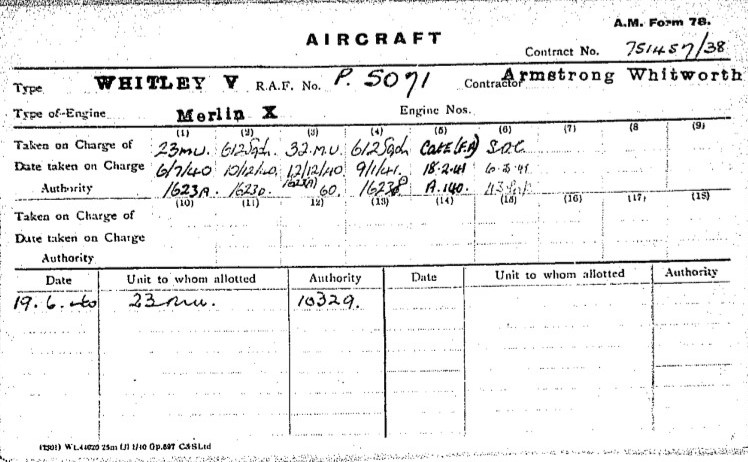 A.M. Form 78.
AIRCRAFT
Contract No. 751457/38
Type WHITLEY V R.A.F. No. P. 5071 Contractor Armstrong Whitworth
Type of Engine Merlin X Engine Nos.
(1) (2) (3) (4) (5) (6) (7) (8 (9)
Taken on Charge of 23 M.U. 612 Sqdn. 32. M.U. 612 Sqdn CatE(F.A) S.O.C.
Date taken on Charge 6/7/40 10/12/40. 12/12/40 9/1/41. 18.2.41
Authority 1623A. 1623D. 60. A.140.
(10) (11) 12) (13) (14) (15) (16) (17) (18)
Taken on Charge of
Date taken on Charge
Authority
Date Unit to whom allotted Authority Date Unit to whom allotted Authority
19. 6. 40 23 M.U. 10329.
25m 1/10 Gp.697 C&SLtd